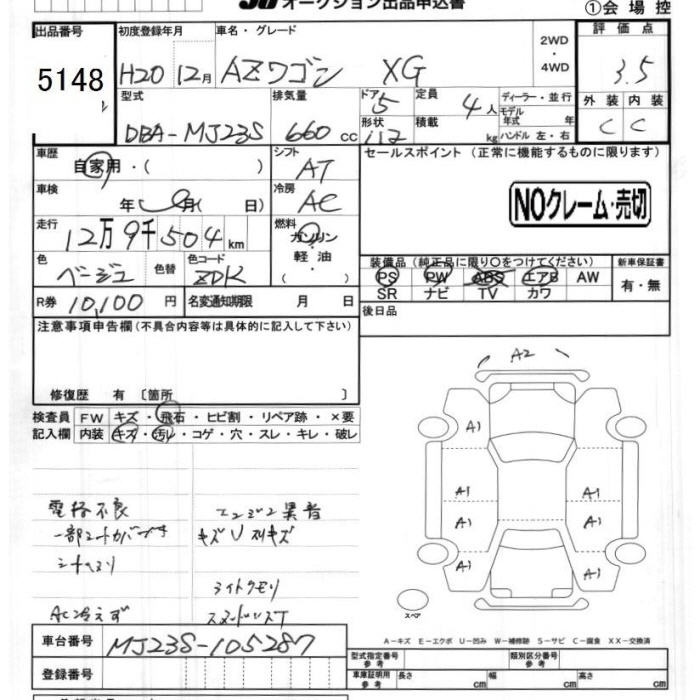 オークション出品申込書
①会場控
出品番号
5148
初度登録年月
H20 12月
車名・グレード
AZワゴン XG
2WD
・
4WD
評価点
3.5
外装 内装
C C
型式
DBA-MJ23S
排気量
660 cc
ドア
5
形状
定員
4人
積載
kg
ディーラー・並行
モデル年式 年
ハンドル 左・右
車歴
自家用・( )
シフト
AT
セールスポイント(正常に機能するものに限ります)
NOクレーム・売切
車検
年 月( 日)
冷房
AC
走行
12万9千504km
燃料
ガソリン
軽油
・
( )
色
ベージュ
色替
色コード
ZDK
装備品(純正品に限り〇をつけてください)
PS PW ABS エアB AW
SR ナビ TV カワ
新車保証書
有・無
R券 10,100円
名変通知期限 月 日
後日品
注意事項申告欄(不具合内容等は具体的に記入して下さい)
修復歴 有 〔箇所 〕
検査員
記入欄
FW キズ・飛石・ヒビ割・リペア跡・×要
内装 キズ・汚レ・コゲ・穴・スレ・キレ・破レ
A2
A1
A1 A1
A1 A1
A1 A1
スペア
電格不良
エンジン異音
キズU スリキズ
ライトクモリ
AC冷えず
A-キズ E-エクボ U-凹み W-補修跡 S-サビ C-腐食 XX-交換済
車台番号 MJ23S-105287
登録番号
型式指定番号
参考
類別区分番号
参考
車庫証明用
参考
長さ cm 幅 cm 高さ cm